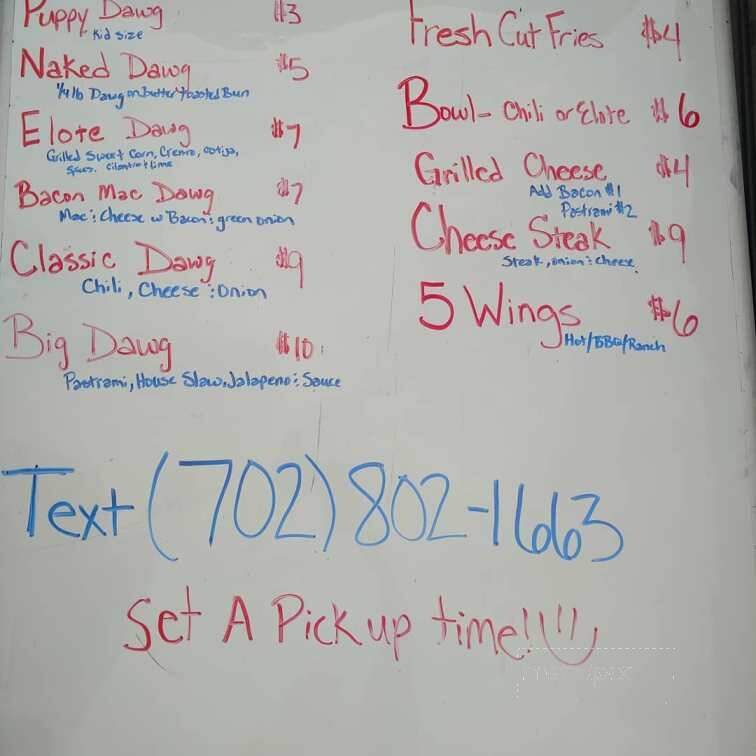 Puppy Dawg $3
Kid Size
Naked Dawg $5
1/4 lb Dawg on butter toasted Bun
Elote Dawg $7
Grilled Sweet Corn, Creme, cotija,
Spices, cilantro & lime
Bacon Mac Dawg $7
Mac & Cheese w Bacon & green onion
Classic Dawg $9
Chili, Cheese & Onion
Big Dawg $10
Pastrami, House Slaw, Jalapeno & Sauce
Fresh Cut Fries $4
Bowl - Chili or Elote $6
Grilled Cheese $4
Add Bacon $1
Pastrami $2
Cheese Steak $9
Steak, onion & cheese
5 Wings $6
Hot/BBQ/Ranch
Text (702) 802-1663
Set A Pick up time!!